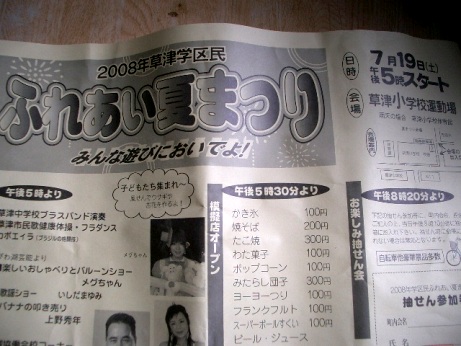 2008年草津学区民
ふれあい夏まつり
みんな遊びにおいでよ!
日時
7月19日(土)
午後5時スタート
会場
草津小学校運動場
午後5時より
草津中学校ブラスバンド演奏
草津市民歌健康体操・フラダンス
カポエイラ(ブラジルの格闘技)
楽しいおしゃべりとバルーンショー
メグちゃん
歌謡ショー いしだまゆみ
バナナの叩き売り
上野秀年
子どもたち集まれ〜
メグちゃん
模擬店オープン
午後5時30分より
かき氷 100円
焼そば 200円
たこ焼 300円
わた菓子 100円
ポップコーン 100円
みたらし団子 300円
ヨーヨーつり 100円
フランクフルト 100円
スーパーボールすくい 100円
ビール・ジュース
お楽しみ抽せん会
午後8時20分より
自転車他豪華景品多数
2008年草津学区民ふれあい夏
抽せん参加
町内会名